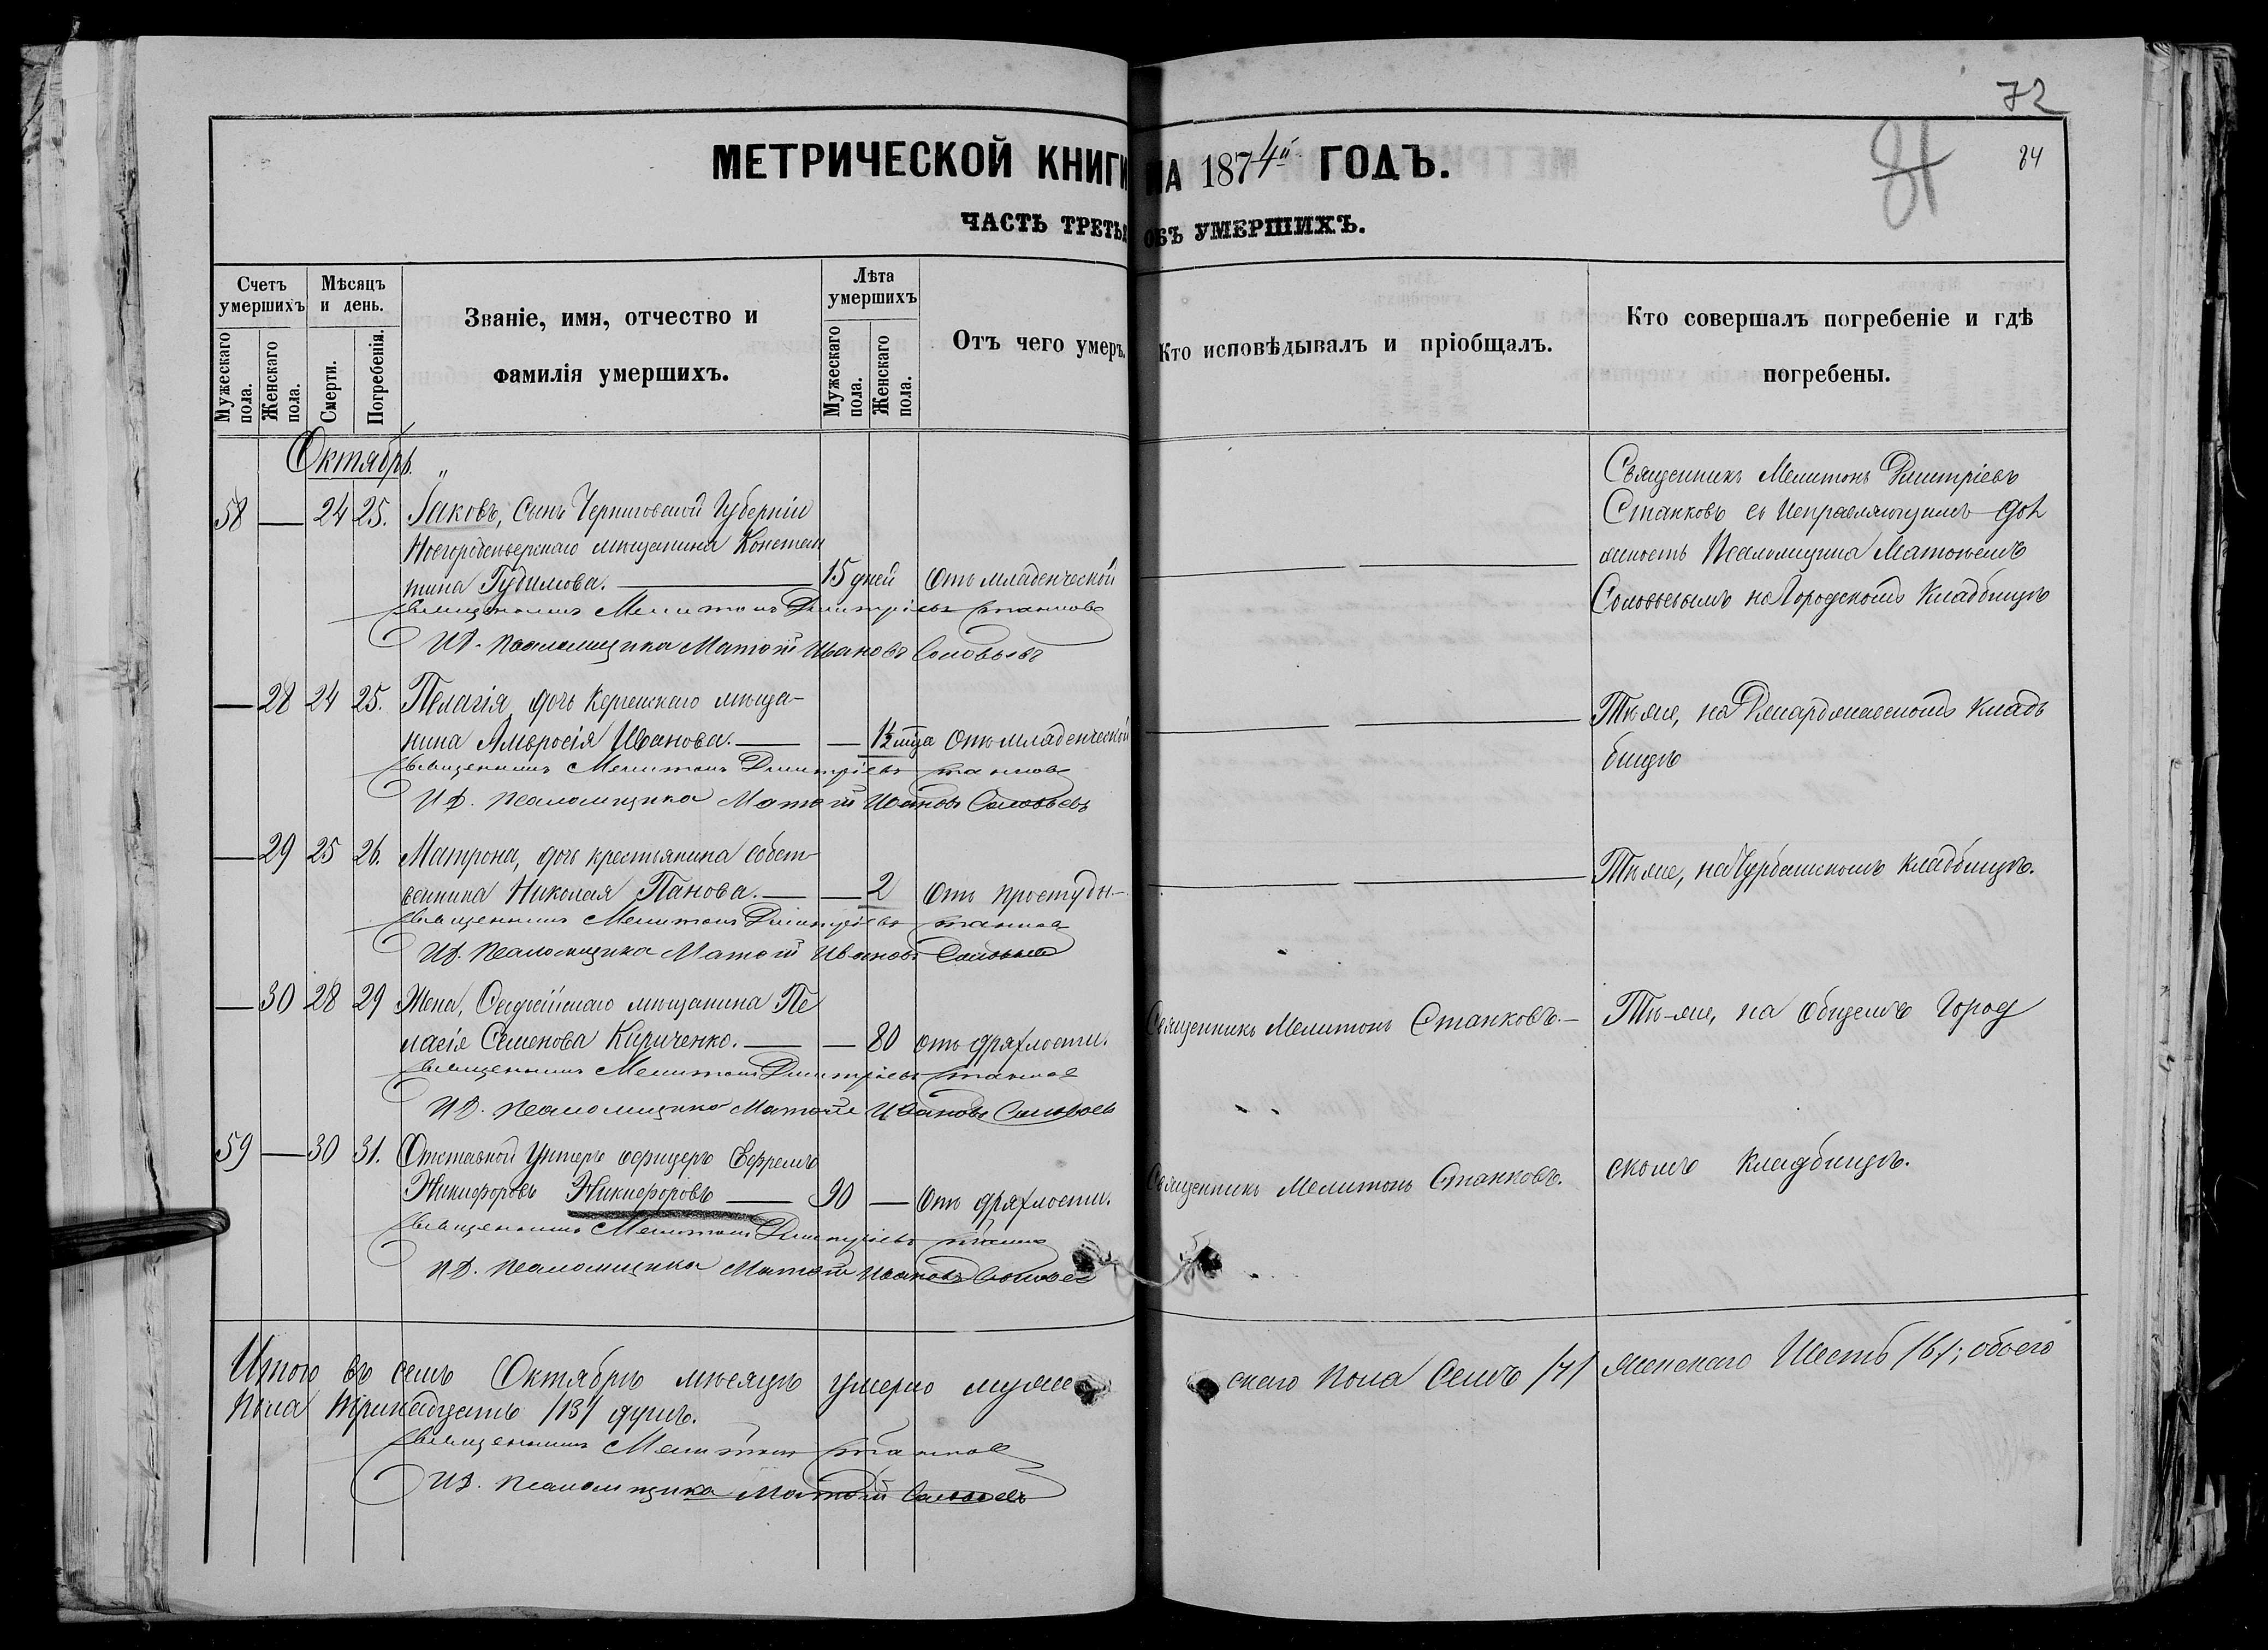 72
84
81
МЕТРИЧЕСКОЙ КНИГИ НА 1874й ГОДЪ.
ЧАСТЬ ТРЕТЬЯ ОБЪ УМЕРШИХЪ.
Счетъ умершихъ
Мѣсяцъ и день.
Званіе, имя, отчество и фамилія умершихъ.
Лѣта умершихъ
Отъ чего умеръ.
Кто исповѣдывалъ и пріобщалъ.
Кто совершалъ погребеніе и гдѣ погребены.
Мужескаго пола.
Женскаго пола.
Смерти.
Погребенія.
Мужескаго пола.
Женскаго пола.
Октябрь.
58 — 24 25. Іаковъ, сынъ Черниговской Губерніи
Новгородсѣверскаго мѣщанина Констан
тина Гудимова. — 15 дней Отъ младенческой
Священникъ Мелитонъ Димитріевъ Станковъ
И.Д. Псаломщика Матѳій Ивановъ Соловьевъ
Священникъ Мелитонъ Димитріевъ
Станковъ съ Исправляющимъ дол
жность Псаломщика Матѳіемъ
Соловьевымъ на Городскомъ Кладбищѣ
— 28 24 25. Пелагія, дочь Керченскаго мѣща-
нина Амвросія Иванова. — — Отъ младенческой
Священникъ Мелитонъ Димитріевъ Станковъ
И.Д. Псаломщика Матѳій Ивановъ Соловьевъ
Тѣ же, на кладъ
бищѣ
— 29 25 26. Матрона, дочь крестьянина собст-
венника Николая Панова. — — 2 Отъ простуды —
Священникъ Мелитонъ Димитріевъ Станковъ
И.Д. Псаломщика Матѳій Ивановъ Соловьевъ
Тѣ же, на кладбищѣ.
— 30 28 29 Жена, мѣщанина Пе
лагія Семенова Кириченко. — — 80 отъ дряхлости.
Священникъ Мелитонъ Станковъ. —
Тѣ-же, на общемъ Город
Священникъ Мелитонъ Димитріевъ Станковъ
И.Д. Псаломщика Матѳій Ивановъ Соловьевъ
59 — 30 31. Отставной Унтеръ офицеръ Ефремъ
Никифоровъ Никифоровъ — 90 — Отъ дряхлости.
Священникъ Мелитонъ Станковъ.
скомъ Кладбищѣ.
Священникъ Мелитонъ Димитріевъ Станковъ
И.Д. Псаломщика Матѳій Ивановъ Соловьевъ
Итого въ семъ Октябрѣ мѣсяцѣ умерло муже скаго пола Семь /7/ женскаго Шесть /6/; обоего
пола тринадцать /13/ душъ.
Священникъ Мелитонъ Станковъ
И.Д. Псаломщика Матѳій Соловьевъ